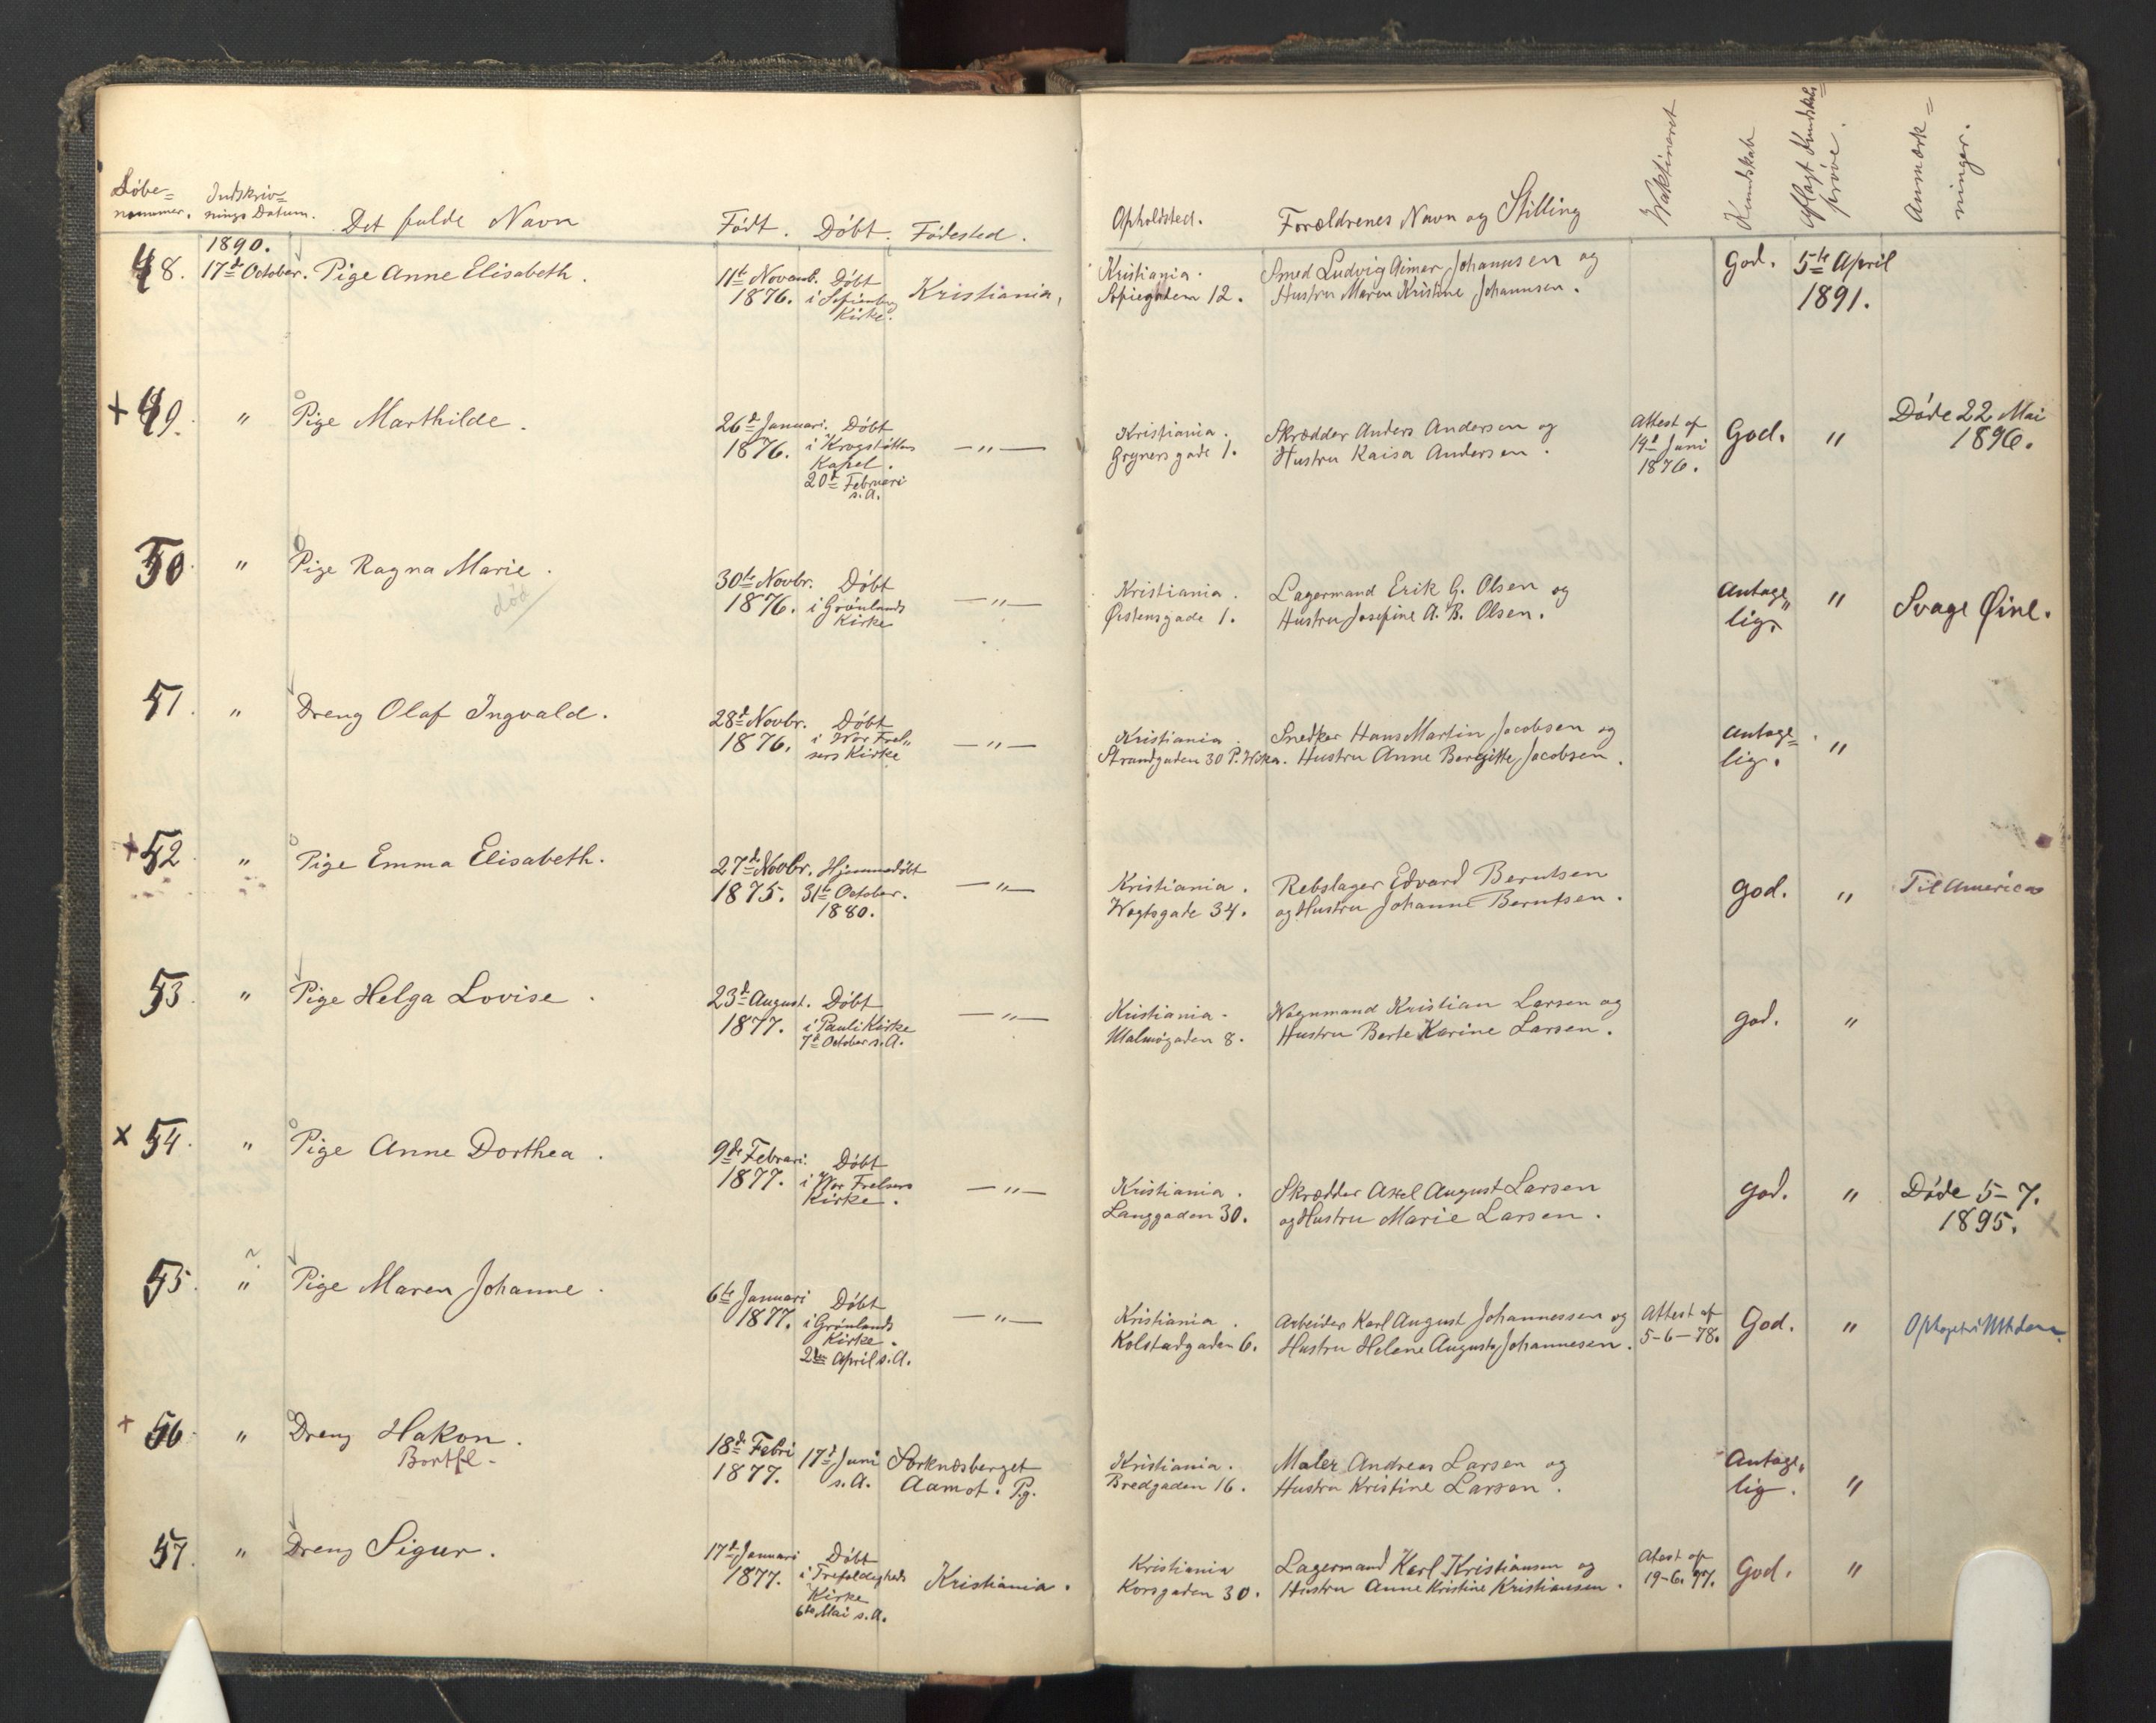 Løbe=
nummer.
Indskriv=
nings Datum.
Det fulde Navn
Født.
Døbt.
Fødested.
Opholdsted.
Forældrenes Navn og Stilling
Vaktineret
Kundskab
Aflagt Kundskabs=
prøve.
Anmærk=
ninger.
1890.
48. 17de October. Pige Anne Elisabeth.
11te Novemb.
1876.
Døbt
i Sofienberg
Kirke.
Kristiania,
Kristiania.
Sofiegaden 12.
Smed Ludvig Aimar Johannsen og
Hustru Maren Kristine Johannsen.
God.
5te April
1891.
+ 49. " Pige Marthilde.
26de Januari.
1876.
Døbt
i Krogstøttens
Kapel.
20de Februari
s.A.
—"—
Kristiania.
Grynersgade 1.
Skrædder Anders Andersen og
Hustru Kaisa Andersen.
Attest af
14de Juni
1876.
God.
"
Døde 22 Mai
1896.
50. " Pige Ragna Marie.
død
30te Novbr.
1876.
Døbt
i Grønlands
Kirke
—"—
Kristiania.
Østensgade 1.
Lagermand Erik G. Olsen og
Hustru Josefine A. B. Olsen.
Antage„
lig.
"
Svage Øine.
51. " Dreng Olaf Ingvald.
28de Novbr.
1876.
Døbt
i Wor Frel„
sers Kirke
—"—
Kristiania.
Strandgaden 30 P. Wika.
Snedker Hans Martin Jacobsen og
Hustru Anne Bergitte Jacobsen.
Antage=
lig.
"
+ 52. " Pige Emma Elisabeth.
27de Novbr.
1875.
Hjemmedøbt
31te October.
1880.
—"—
Kristiania.
Wogtsgade 34.
Rebslager Edvard Berntsen
og Hustru Johanne Berntsen.
god.
"
Til America
53. " Pige Helga Lovise.
23de August.
1877.
Døbt
i Pauli Kirke
7de October s.A.
—"—
Kristiania.
Malmøgaden 8.
Vognmand Kristian Larsen og
Hustru Berte Karine Larsen.
god.
"
x 54. " Pige Anne Dorthea.
9de Februari.
1877.
Døbt
i Wor Frelsers
Kirke.
—"—
Kristiania.
Langgaden 30.
Skrædder Axel August Larsen
og Hustru Marie Larsen.
god.
"
Døde 5-7.
1895. x
55. " Pige Maren Johanne.
6te Januari
1877.
Døbt
i Grønlands
Kirke.
2den April s.A.
—"—
Kristiania.
Kolstadgaden 6.
Arbeider Karl August Johannessen og
Hustru Helene Augusta Johannesen.
Attest af
5-6-78.
God.
"
+ 56. " Dreng Hakon.
Bortfl.
18de Febri
1877.
17de Juni
s.A.
Sorknæsberget
Aamot. Pg.
Kristiania.
Bredgaden 16.
Maler Andreas Larsen og
Hustru Kristine Larsen.
Antage„
lig.
"
57. " Dreng Sigur.
17de Januari
1877.
Døbt
i Trefoldigheds
Kirke
6te Mai s.A.
Kristiania.
Kristiania
Korsgaden 30.
Lagermand Karl Kristiansen og
Hustru Anne Kristine Kristiansen.
Atest af
19-6. 77.
God.
"